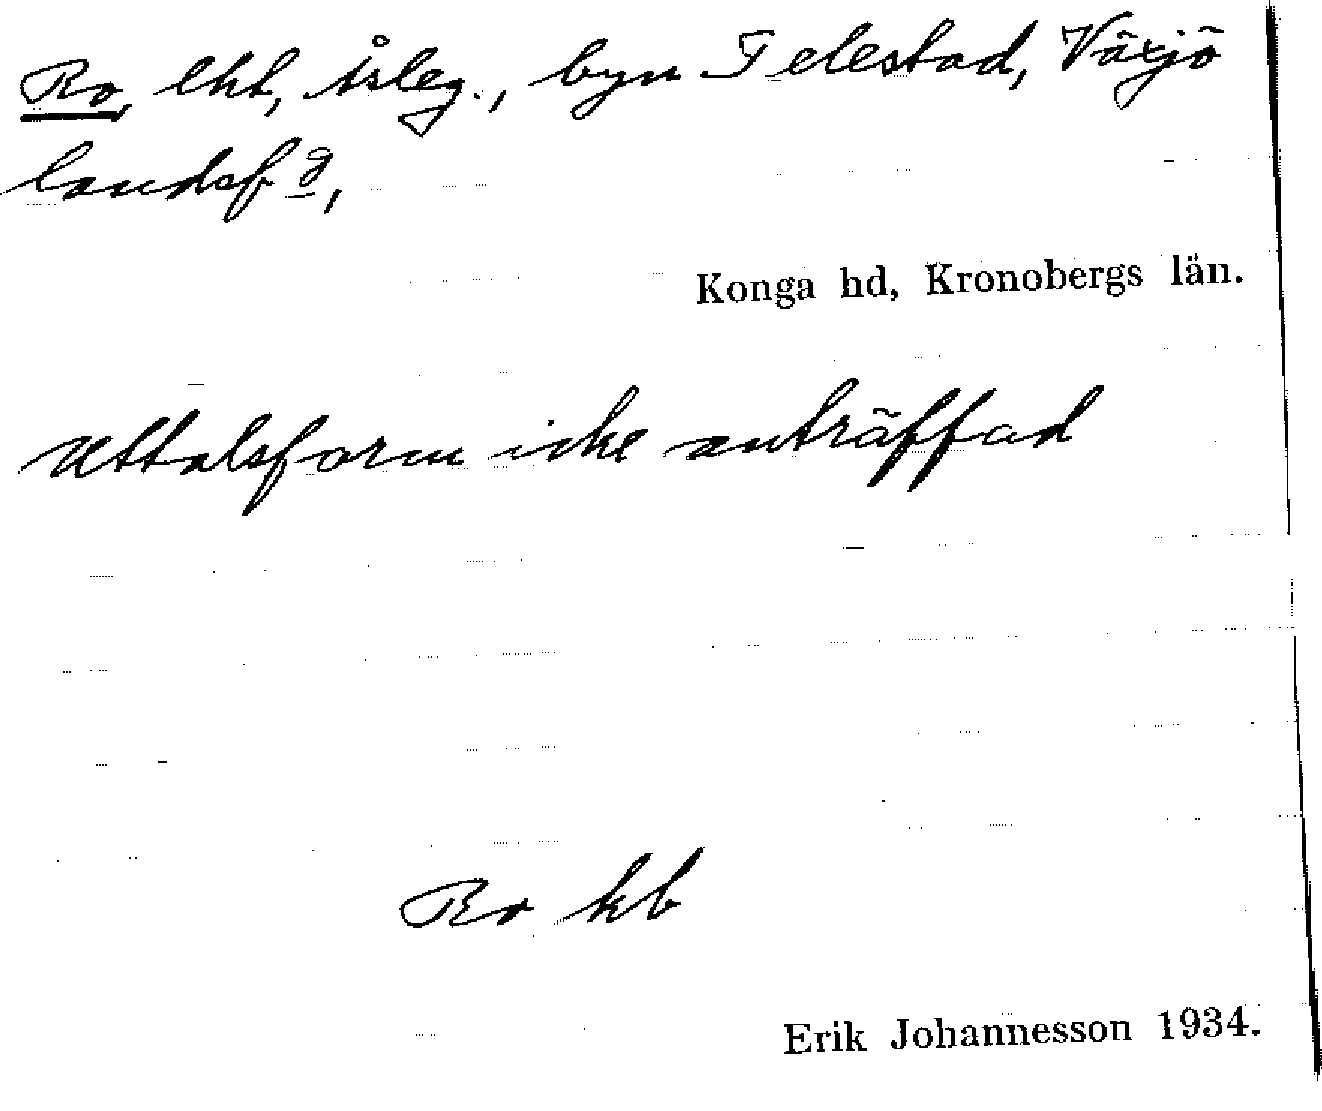 Ro, lht, åsleg., byn Telestad, Växjö
landsfg,
Konga hd, Kronobergs län.
Uttalsform icke anträffad
Ro kb
Erik Johannesson 1934.